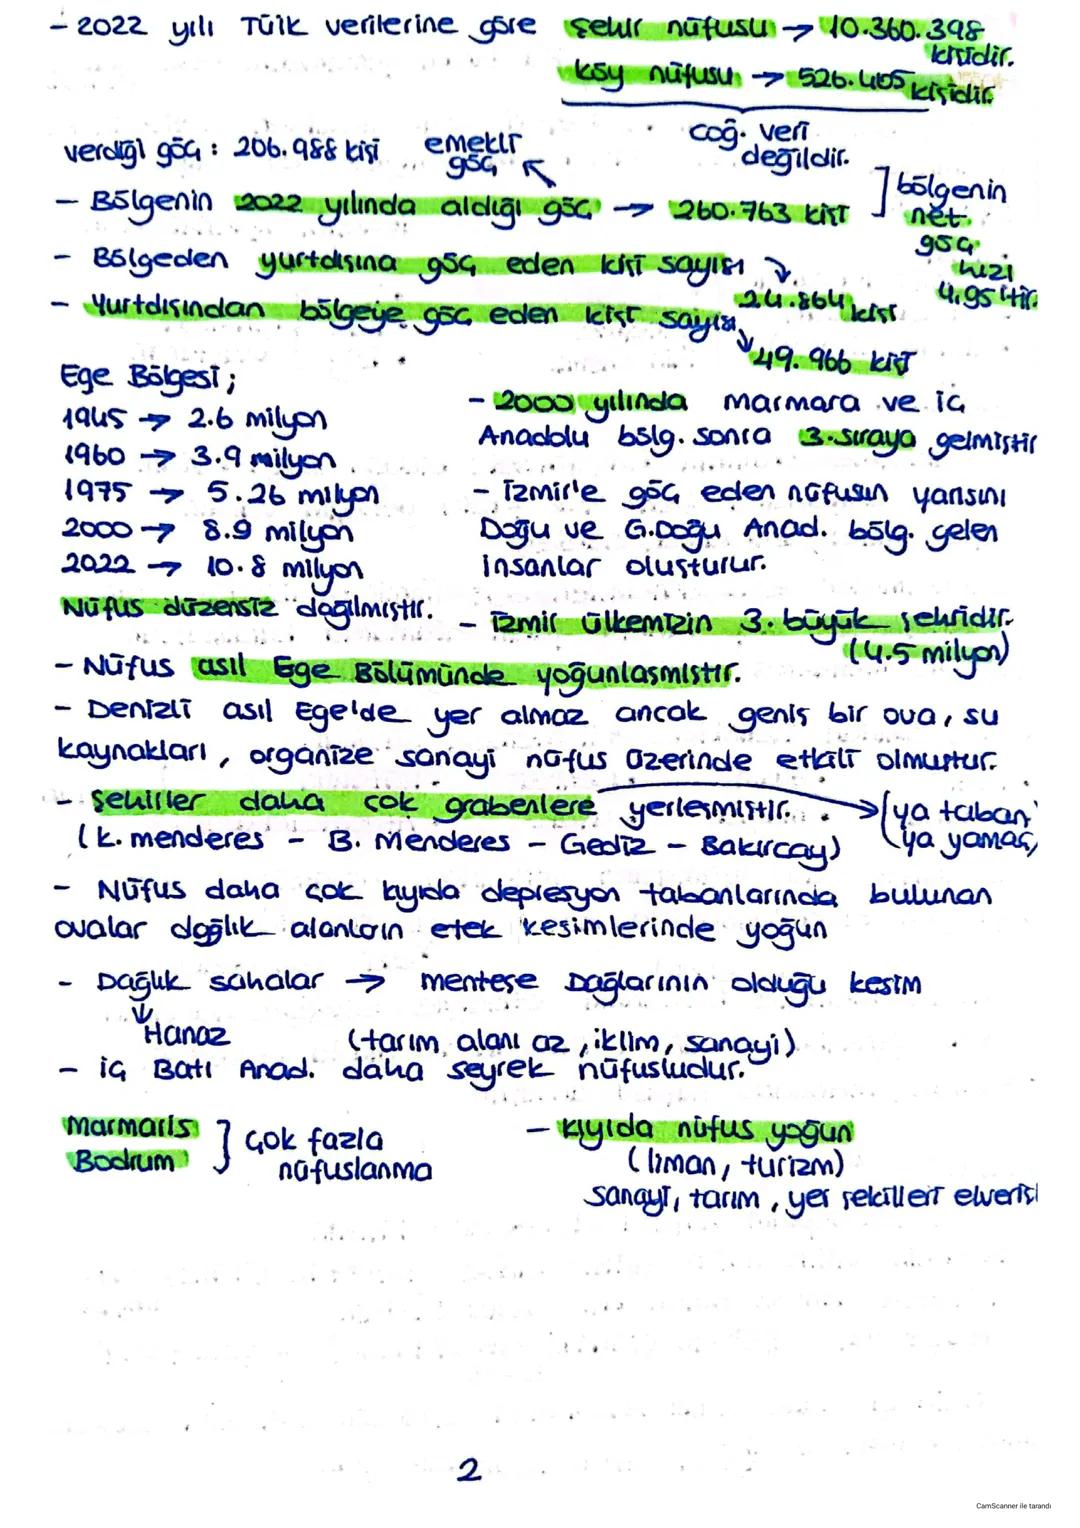 - 2022 yılı Tüik verilerine göre şehir nüfusu → 10.360.398 kişidir.
köy nüfusu → 526.405 kişidir.
coğ. veri değildir.
verdiği göç : 206.988 kişi
emekli göç
- Bölgenin 2022 yılında aldığı göç → 260.763 kişi
] bölgenin net göç hızı 4.95'tir.
- Bölgeden yurtdışına göç eden kişi sayısı
24.864 kişi
- Yurtdışından bölgeye göç eden kişi sayısı
49.966 kişi
Ege Bölgesi ;
1945 → 2.6 milyon
1960 → 3.9 milyon
1975 → 5.26 milyon
2000 → 8.9 milyon
2022 → 10.8 milyon
Nüfus düzensiz dağılmıştır.
- 2000 yılında marmara ve iç
Anadolu bölg. sonra 3. sıraya gelmiştir
- İzmir'e göç eden nüfusun yarısını
Doğu ve G.Doğu Anad. bölg. gelen
insanlar oluşturur.
- İzmir ülkemizin 3. büyük şehridir.
(4.5 milyon)
- Nüfus asıl Ege Bölümünde yoğunlaşmıştır.
- Denizli asıl Ege'de yer almaz ancak geniş bir ova, su
kaynakları, organize sanayi nüfus üzerinde etkili olmuştur.
- Şehirler daha çok grabenlere yerleşmiştir. → (ya taban
ya yamaç)
(K. menderes - B. Menderes - Gediz - Bakırçay)
- Nüfus daha çok kıyıda depresyon tabanlarında bulunan
ovalar dağlık alanların etek kesimlerinde yoğun
- Dağlık sahalar → menteşe Dağlarının olduğu kesim
Hanaz (tarım alanı az, iklim, sanayi)
- iç Batı Anad. daha seyrek nüfusludur.
Marmaris
Bodrum
] çok fazla
nüfuslanma
- kıyıda nüfus yoğun
(liman, turizm)
sanayi, tarım, yer şekilleri elveriş
2
CamScanner ile tarandı